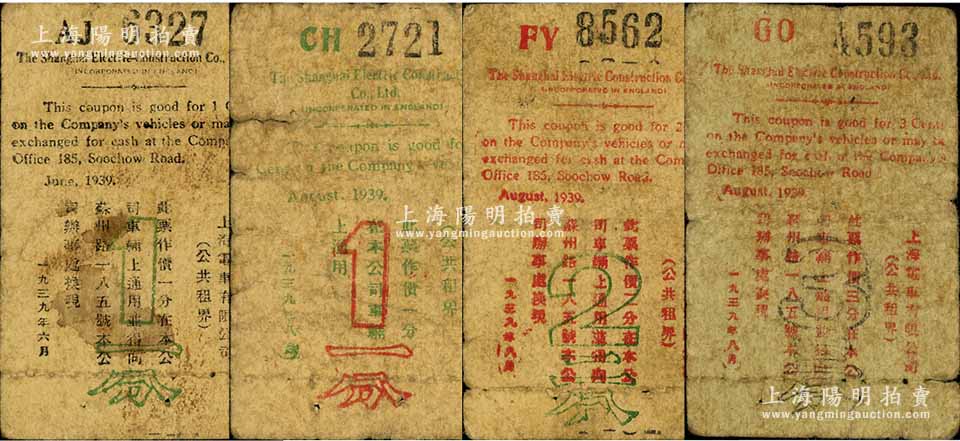 AJ 6327
The Shanghai Electric Construction Co.,
(INCORPORATED IN ENGLAND)
This coupon is good for 1
on the Company's vehicles or ma
exchanged for cash at the Comp
Office 185, Soochow Road.
June, 1939.
上海電車有限公司
(公共租界)
此票作價一分在本公
司車輛上通用並得向
蘇州路一八五號本公
司辦事處換現
一九三九年六月
1
一分
CH 2721
The Shanghai Electric Construct
Co., Ltd.
(INCORPORATED IN ENGLAND)
coupon is good fo
the Company's ve
August, 1939.
共租界
作價一分
在本公司車輛
上通用
1
一分
FY 8562
The Shanghai Electric Construction C
(INCORPORATED IN ENGLAND)
This coupon is good for 2
on the Company's vehicles or m
exchanged for cash at the Com
Office 185, Soochow Road.
August, 1939.
(公共租界)
此票作價二分在本公
司車輛上通用並得向
蘇州路一八五號本公
司辦事處換現
一九三九年八月
2
二分
GO 4593
The Shanghai Electric Construction Co., Ltd.
(INCORPORATED IN ENGLAND)
This coupon is good for 3 Cents
on the Company's vehicles or may be
exchanged for cash at the Company's
Office 185, Soochow Road
August, 1939.
上海電車有限公司
(公共租界)
此票作價三分在本公
蘇州路一八五號本公
司辦事處換現
一九三九年八月
3
上海陽明拍賣
www.yangmingauction.com
上海陽明拍賣
www.yangmingauction.com
上海陽明拍賣
www.yangmingauction.com